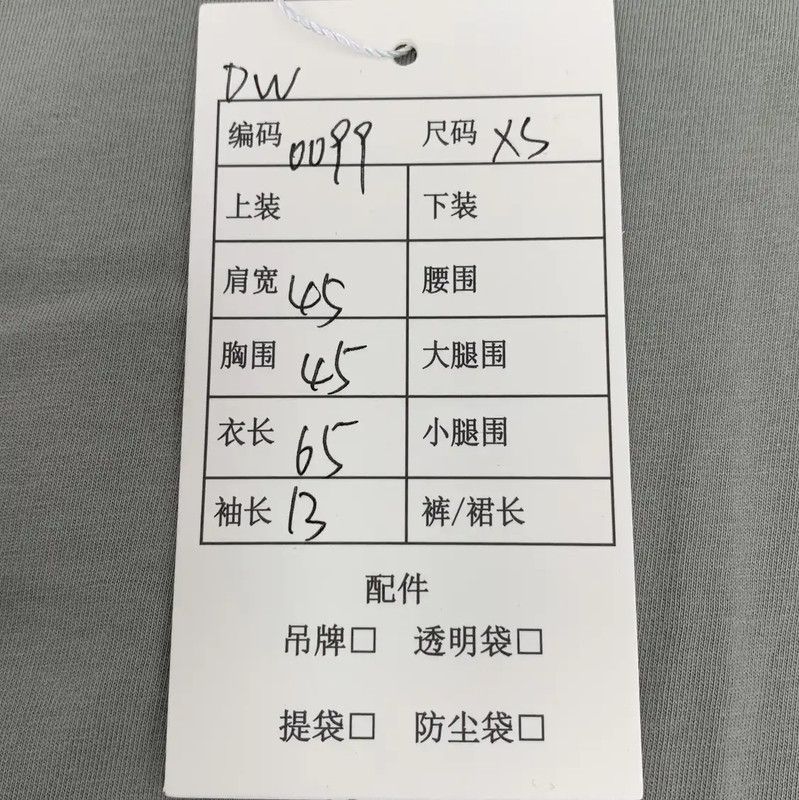 DW
编码 0099 尺码 XS
上装 下装
肩宽 45 腰围
胸围 45 大腿围
衣长 65 小腿围
袖长 13 裤/裙长
配件
吊牌□ 透明袋□
提袋□ 防尘袋□